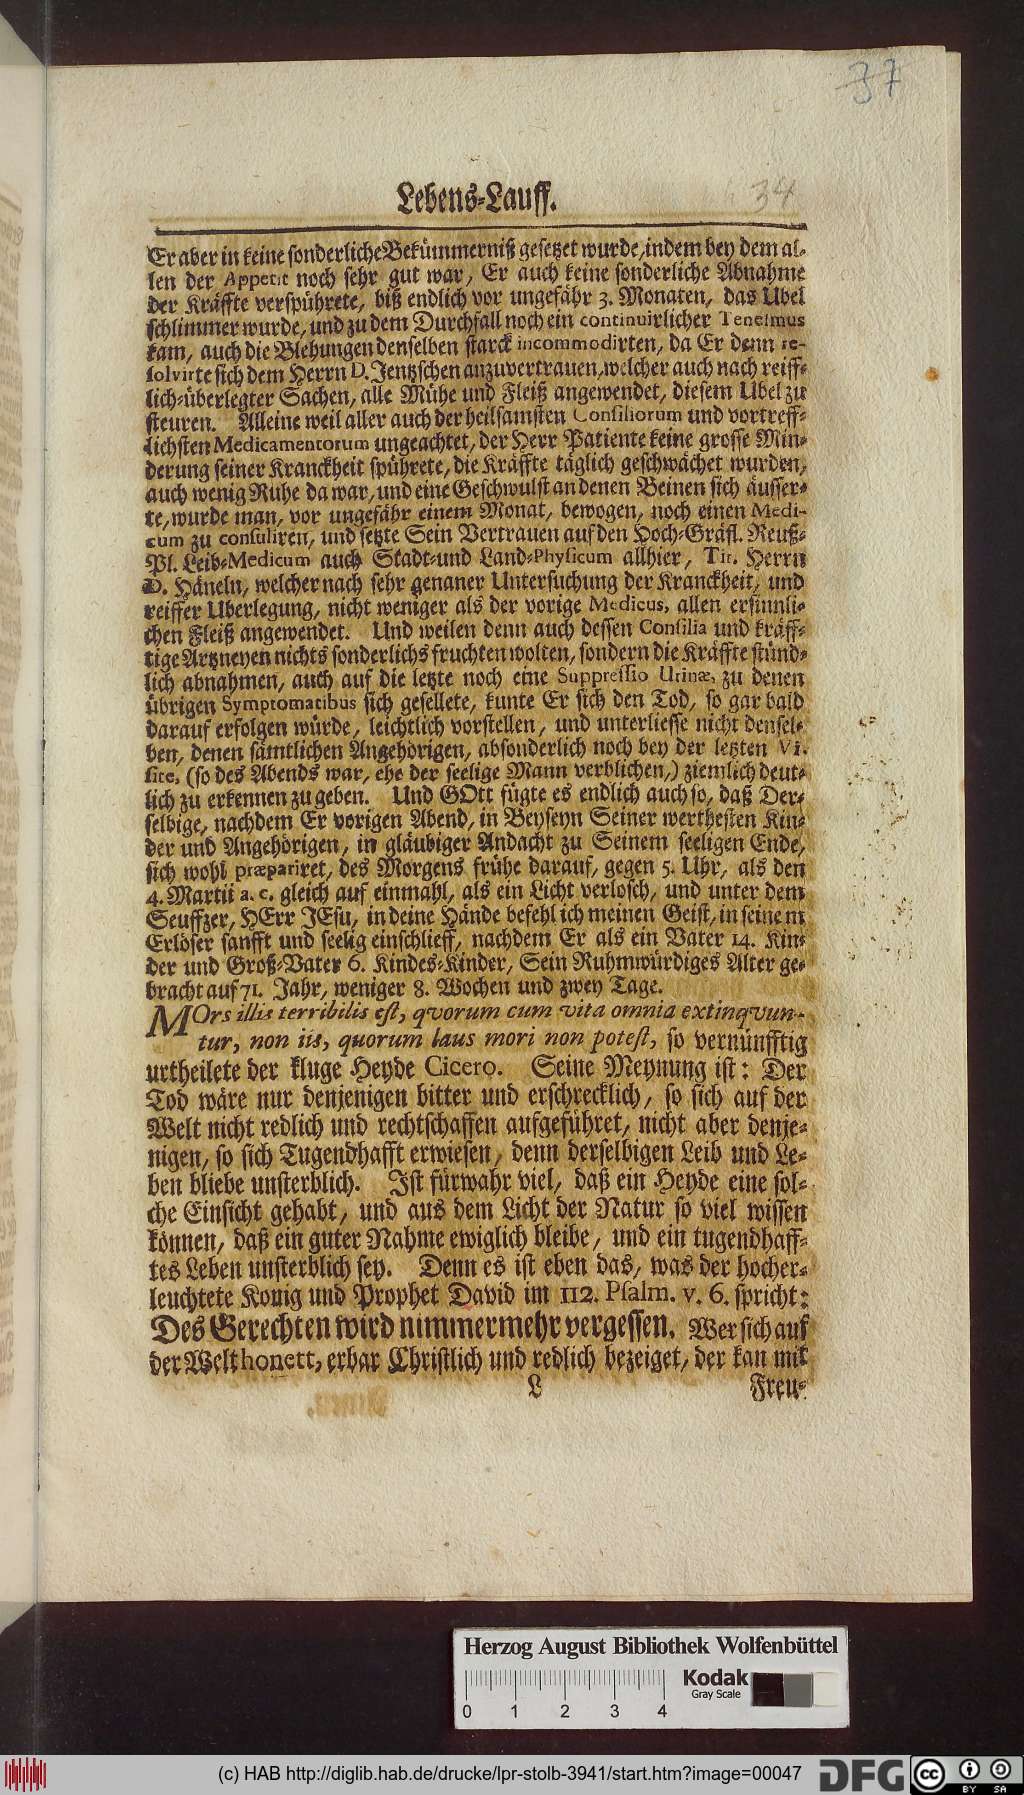 37
Lebens-Lauff. 34
Er aber in keine sonderliche Bekümmerniß gesetzet wurde, indem bey dem al-
len der Appetit noch sehr gut war, Er auch keine sonderliche Abnahme
der Kräffte verspührete, biß endlich vor ungefähr 3. Monaten, das Ubel
schlimmer wurde, und zu dem Durchfall noch ein continuirlicher Tenesmus
kam, auch die Blehungen denselben starck incommodirten, da Er denn re-
solvirte sich dem Herrn D. Jentzschen anzuvertrauen, welcher auch nach reiff-
lich-überlegter Sachen, alle Mühe und Fleiß angewendet, diesem Ubel zu
steuren. Alleine weil aller auch der heilsamsten Consiliorum und vortreff-
lichsten Medicamentorum ungeachtet, der Herr Patiente keine grosse Min-
derung seiner Kranckheit spührete, die Kräffte täglich geschwächet wurden,
auch wenig Ruhe da war, und eine Geschwulst an denen Beinen sich äusser-
te, wurde man, vor ungefähr einem Monat, bewogen, noch einen Medi-
cum zu consuliren, und setzte Sein Vertrauen auf den Hoch-Gräfl. Reuß-
Pl. Leib-Medicum auch Stadt-und Land-Physicum allhier, Tit. Herrn
D. Häneln, welcher nach sehr genauer Untersuchung der Kranckheit, und
reiffer Uberlegung, nicht weniger als der vorige Medicus, allen ersinnli-
chen Fleiß angewendet. Und weilen denn auch dessen Consilia und kräff-
tige Artzneyen nichts sonderlichs fruchten wolten, sondern die Kräffte stünd-
lich abnahmen, auch auf die letzte noch eine Suppressio Urinæ, zu denen
übrigen Symptomatibus sich gesellete, kunte Er sich den Tod, so gar bald
darauf erfolgen würde, leichtlich vorstellen, und unterliesse nicht densel-
ben, denen sämtlichen Angehörigen, absonderlich noch bey der letzten Vi-
site, (so des Abends war, ehe der seelige Mann verblichen,) ziemlich deut-
lich zu erkennen zu geben. Und GOtt fügte es endlich auch so, daß Der-
selbige, nachdem Er vorigen Abend, in Beyseyn Seiner werthesten Kin-
der und Angehörigen, in gläubiger Andacht zu Seinem seeligen Ende,
sich wohl præpariret, des Morgens frühe darauf, gegen 5. Uhr, als den
4. Martii a. c. gleich auf einmahl, als ein Licht verlosch, und unter dem
Seuffzer, HErr JEsu, in deine Hände befehl ich meinen Geist, in seinem
Erlöser sanfft und seelig einschlieff, nachdem Er als ein Vater 14. Kin-
der und Groß-Vater 6. Kindes-Kinder, Sein Ruhmwürdiges Alter ge-
bracht auf 71. Jahr, weniger 8. Wochen und zwey Tage.
MOrs illis terribilis est, qvorum cum vita omnia extinqvun-
tur, non iis, quorum laus mori non potest, so vernünfftig
urtheilete der kluge Heyde Cicero. Seine Meynung ist: Der
Tod wäre nur denjenigen bitter und erschrecklich, so sich auf der
Welt nicht redlich und rechtschaffen aufgeführet, nicht aber denje-
nigen, so sich Tugendhafft erwiesen, denn derselbigen Leib und Le-
ben bliebe unsterblich. Ist fürwahr viel, daß ein Heyde eine sol-
che Einsicht gehabt, und aus dem Licht der Natur so viel wissen
können, daß ein guter Nahme ewiglich bleibe, und ein tugendhaff-
tes Leben unsterblich sey. Denn es ist eben das, was der hocher-
leuchtete König und Prophet David im 112. Psalm. v. 6. spricht:
Des Gerechten wird nimmermehr vergessen. Wer sich auf
der Welt honett, erbar Christlich und redlich bezeiget, der kan mit
L Freu-
Herzog August Bibliothek Wolfenbüttel
Kodak
Gray Scale
0 1 2 3 4
(c) HAB http://diglib.hab.de/drucke/lpr-stolb-3941/start.htm?image=00047
DFG
cc BY SA